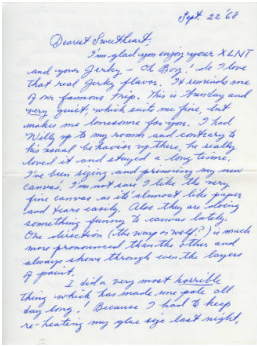 Sept. 22 '68
Dearest Sweetheart;
I'm glad you enjoy your XLNT
and your Jerky - Oh Boy! do I love
that real Jerky flavor. It reminds one
of our famous trip. This is Sunday and
very quiet, which suits me fine, but
makes me lonesome for you. I had
Willy up to my room and contrary to
his usual behavior up there, he really
loved it and stayed a long time.
I've been sizing and priming my new
canvas. I'm not sure I like the very
fine canvas as it's almost like paper
and tears easily. Also they are doing
something funny to canvas lately.
One direction (the warp or woof?) is much
more pronounced than the other and
always shows through even the layers
of paint.
I did a very most horrible
thing which has made me pale all
day long! Because I had to keep
re-heating my glue size last night,